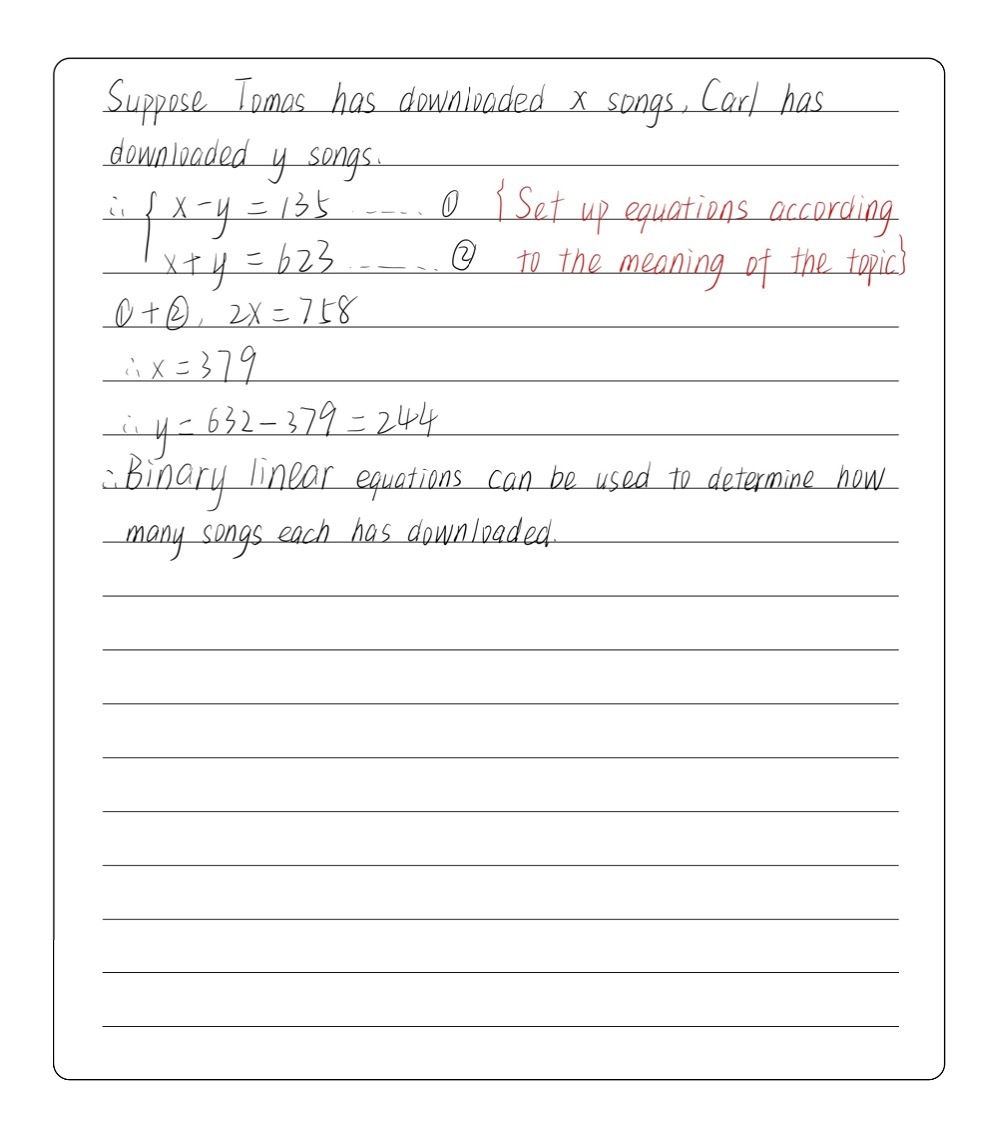 Suppose Tomas has downloaded x songs, Carl has
downloaded y songs.
∴ { x - y = 135 ........ ① {Set up equations according
x + y = 623 ........ ② to the meaning of the topic}
① + ②, 2x = 758
∴ x = 379
∴ y = 632 - 379 = 244
∴ Binary linear equations can be used to determine how
many songs each has downloaded.